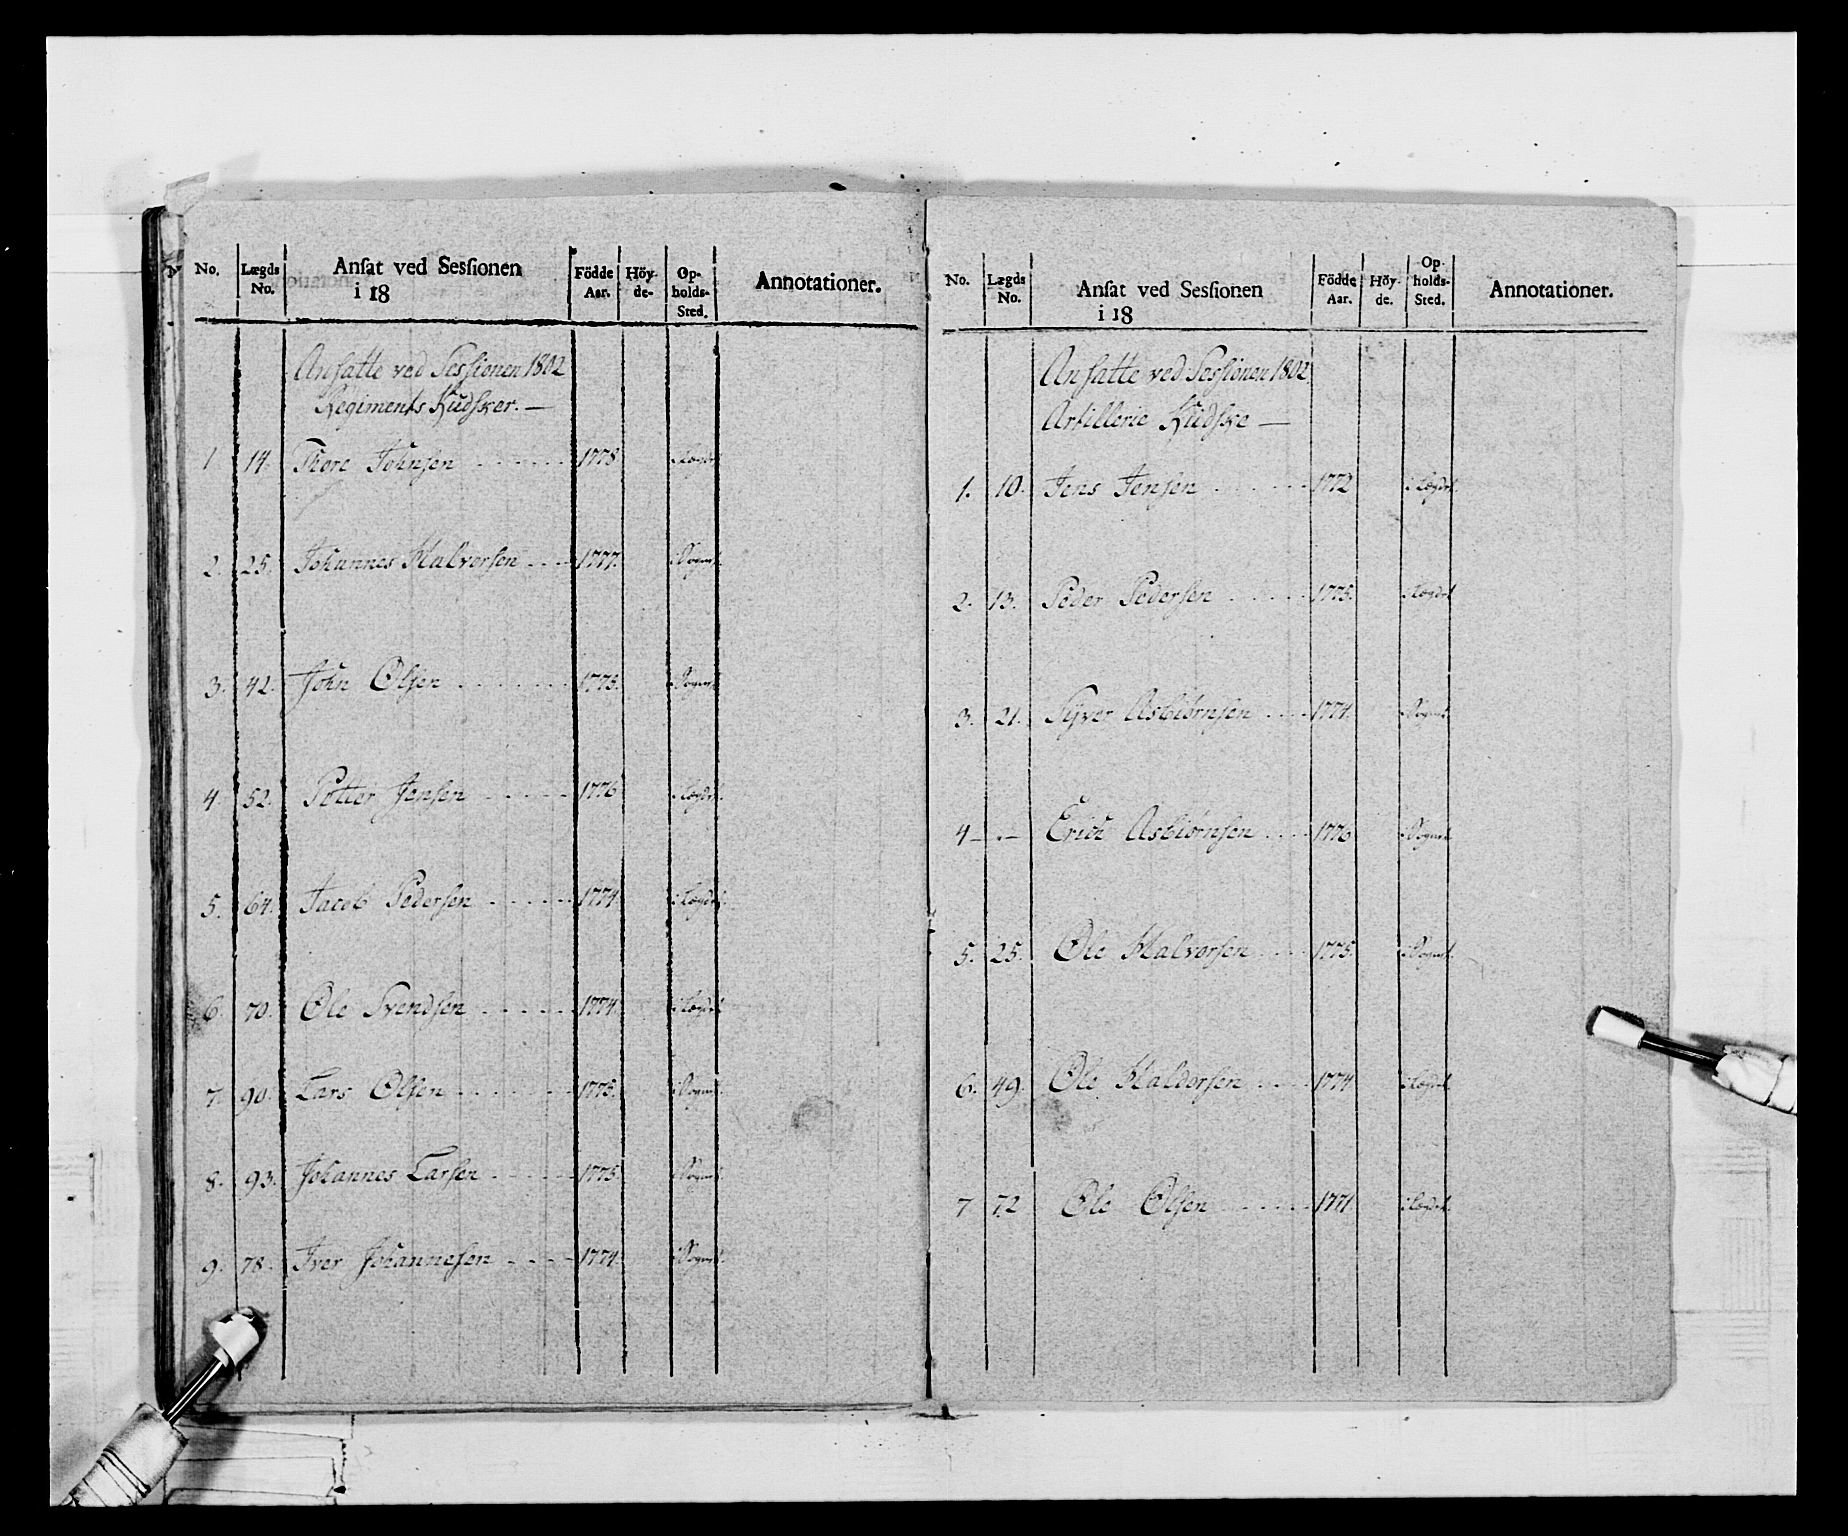 No. Lægds No. Ansat ved Sessionen i 18 Födde Aar. Höyde- Opholds- Sted. Annotationer.
Ansatte ved Sessionen 1802
Regiments Kudsker. —
1 14. Thore Johnsen 1778 i Lægdet
2. 25. Johannes Halvorsen 1777. i Sognet
3. 42. John Olsen 1775. i Sognet
4 52. Petter Jensen 1776 i Lægdet
5. 64. Jacob Pedersen 1774 i Lægdet
6. 70. Ole Svendsen 1774. i Lægdet
7. 90. Lars Olsen 1775. i Sognet
8. 93. Johannes Larsen 1775. i Sognet
9. 78. Iver Johannesen 1774. i Sognet
No. Lægds No. Ansat ved Sessionen i 18 Födde Aar. Höyde. Opholds- Sted. Annotationer.
Ansatte ved Sessionen 1802
Artillerie Kudske —
1. 10. Jens Jensen 1772 i Lægdet
2. 13. Peder Pedersen 1775. i Lægdet
3. 21. Syver Asbiörnsen 1774. i Sognet
4 — . — Erich Asbiörnsen 1776 i Sognet
5. 25. Ole Halvorsen 1775. i Sognet
6. 49. Ole Haldorsen 1774 i Lægdet
7 72 Ole Olsen 1771 i Lægdet